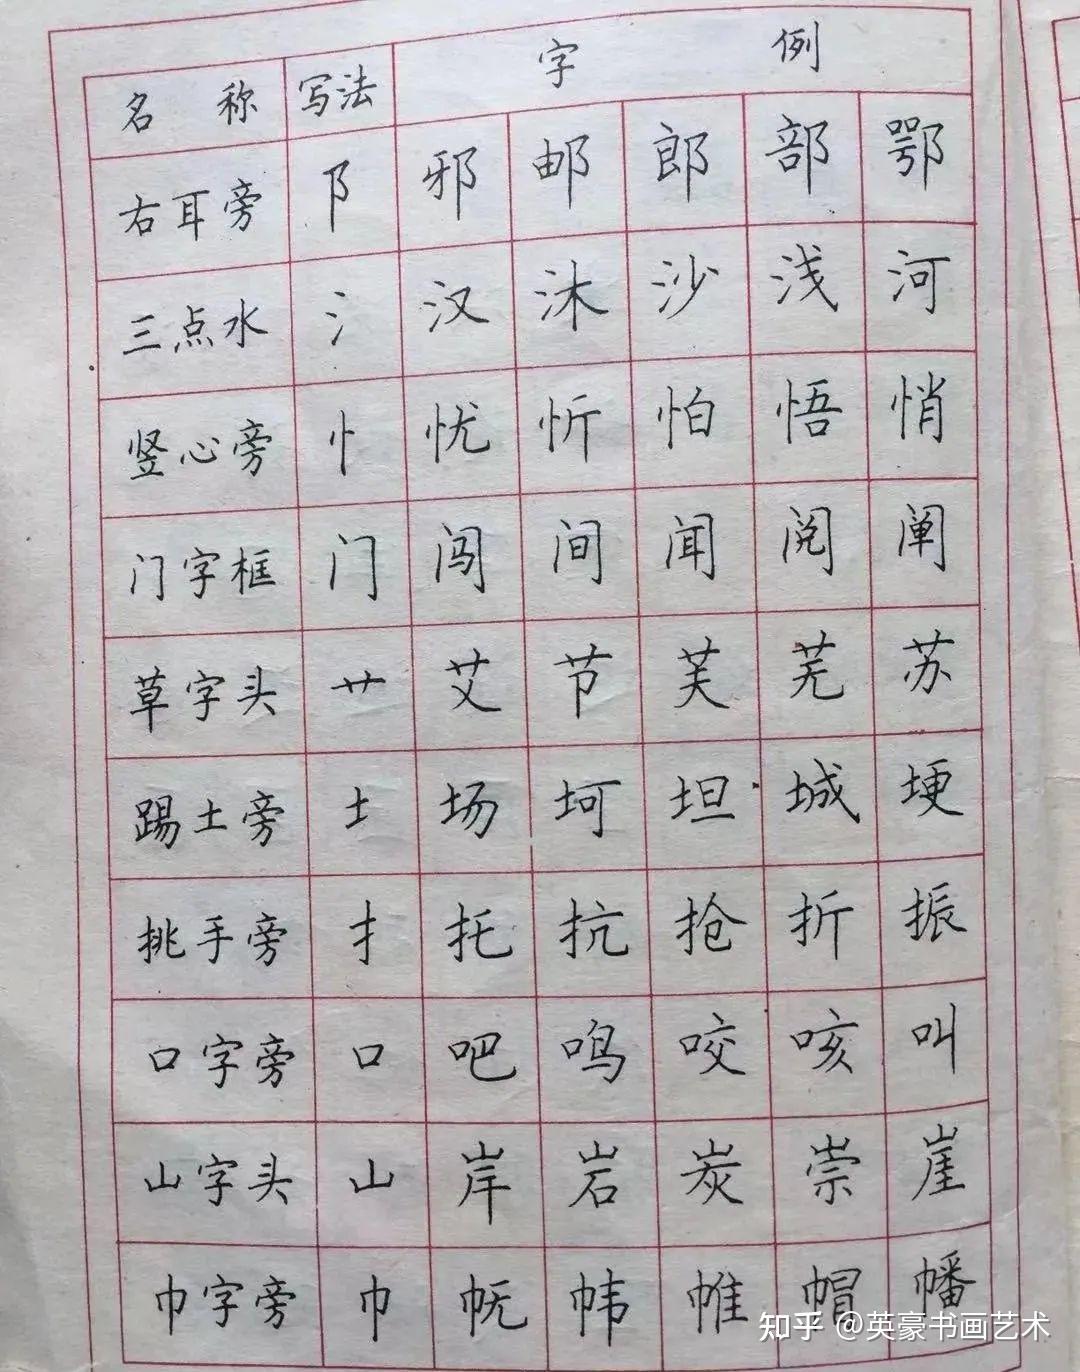 名称 写法 字例
右耳旁 阝 邪 邮 郎 部 鄂
三点水 氵 汉 沐 沙 浅 河
竖心旁 忄 忧 忻 怕 悟 悄
门字框 门 闯 间 闻 阅 阐
草字头 艹 艾 节 芙 芜 苏
踢土旁 土 场 坷 坦 城 埂
挑手旁 扌 托 抗 抢 折 振
口字旁 口 吧 鸣 咬 咳 叫
山字头 山 岸 岩 炭 崇 崖
巾字旁 巾 帐 帏 帷 帽 幡
知乎 @英豪书画艺术